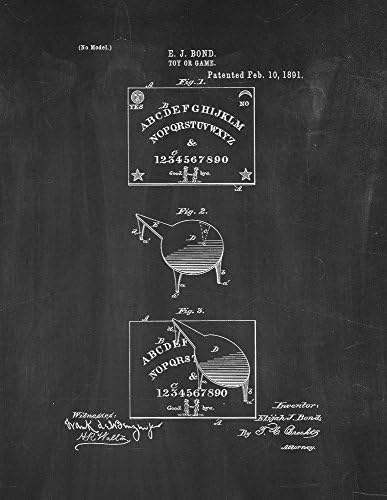 (No Model.)
E. J. BOND.
TOY OR GAME.
Patented Feb. 10, 1891.
Fig. 1.
A
YES B NO
ABCDEFGHIJKLM
NOPQRSTUVWXYZ
&
C
1234567890
Good bye.
A
Fig. 2.
D
Fig. 3.
A
B
D
ABCDEF
NOPQRST
C
1234567890
Good bye.
A
Witnesses:
H.R. Walton
Inventor:
Elijah J. Bond,
By
Attorney.